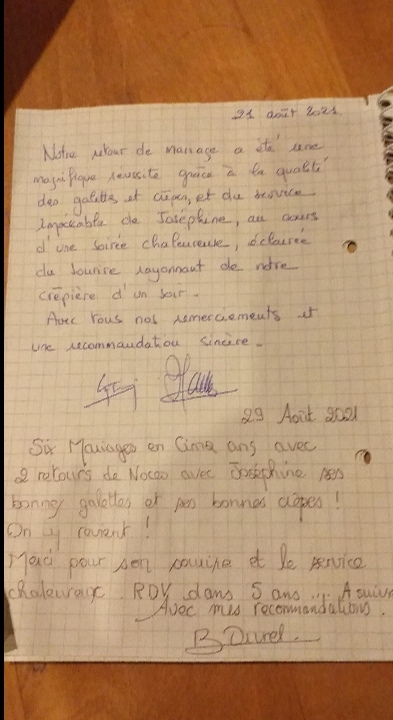 21 août 2021
Notre retour de mariage a été une
magnifique réussite grâce à la qualité
des galettes et crêpes, et du service
impeccable de Joséphine, au cours
d'une soirée chaleureuse, éclairée
du sourire rayonnant de notre
crêpière d'un soir.
Avec tous nos remerciements et
une recommandation sincère.
29 Août 2021
Six Mariages en Cinq ans avec
2 retours de Noces avec Joséphine ses
bonnes galettes et ses bonnes crêpes !
On y revient !
Merci pour son sourire et le service
chaleureux. RDV dans 5 ans ... A suivre
Avec mes recommandations.